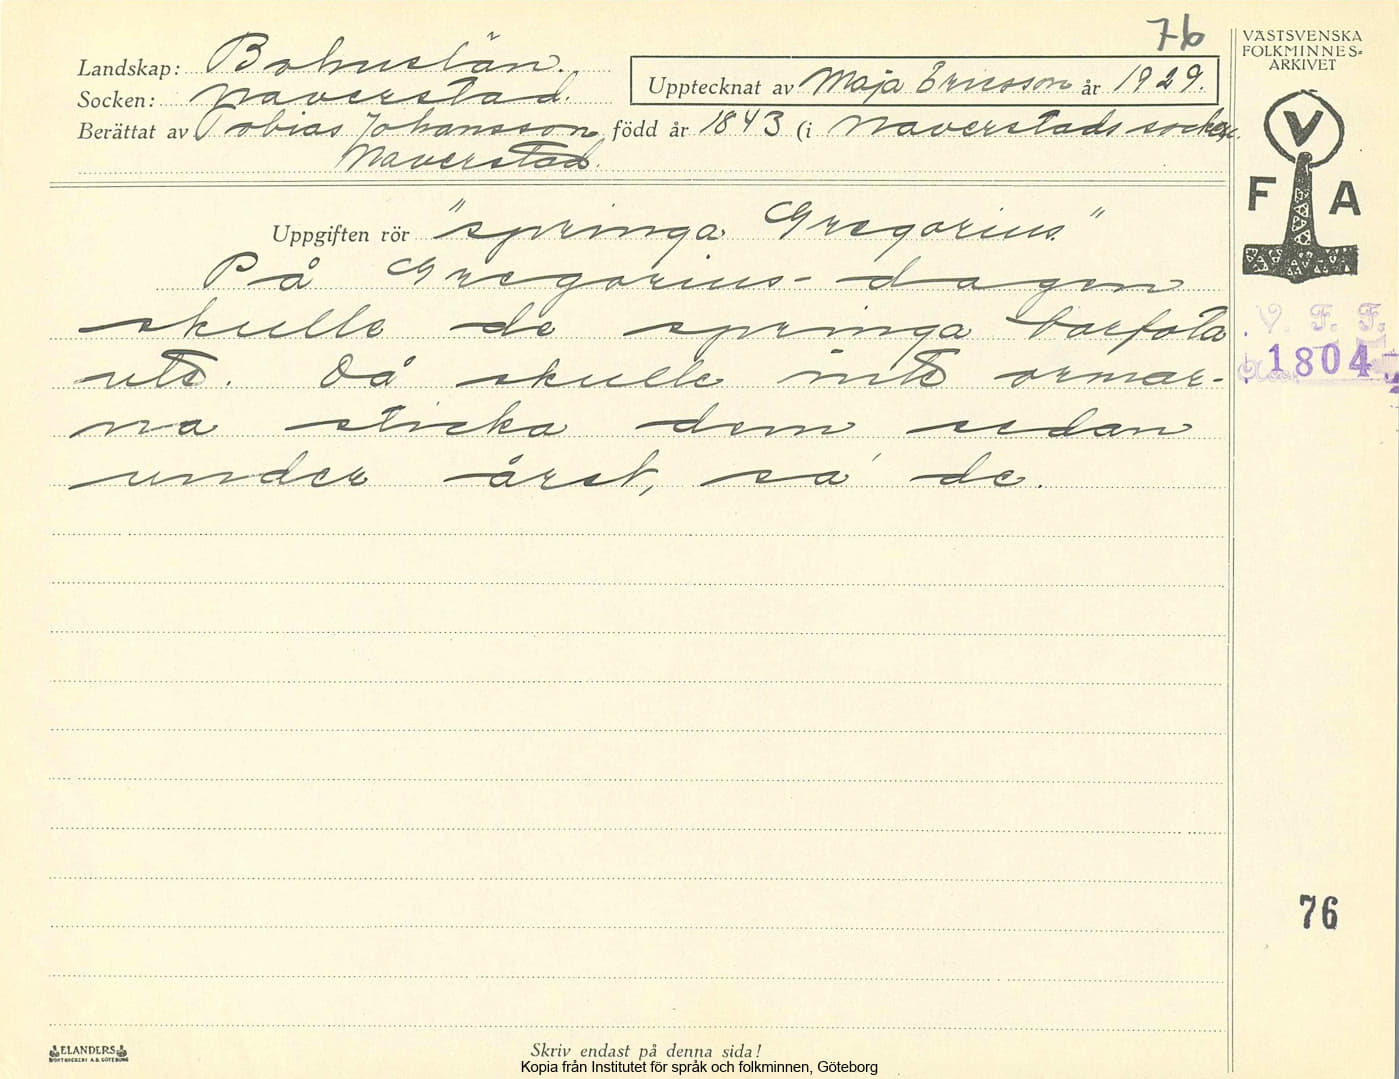 76
Landskap: Bohuslän.
Socken: Naverstad.
Upptecknat av Maja Ericsson år 1929.
Berättat av Tobias Johansson född år 1843 (i Naverstads socken.
Naverstad.
Uppgiften rör "springa Gregorius."
På Gregorius-dagen
skulle de springa barfota
ute. Då skulle inte ormar-
na sticka dem sedan
under året, sa' de.
VÄSTSVENSKA
FOLKMINNES-
ARKIVET
V
F A
V. F. F.
1804
76
ELANDERS
BOKTRYCKERI A.B. GÖTEBORG
Skriv endast på denna sida!
Kopia från Institutet för språk och folkminnen, Göteborg